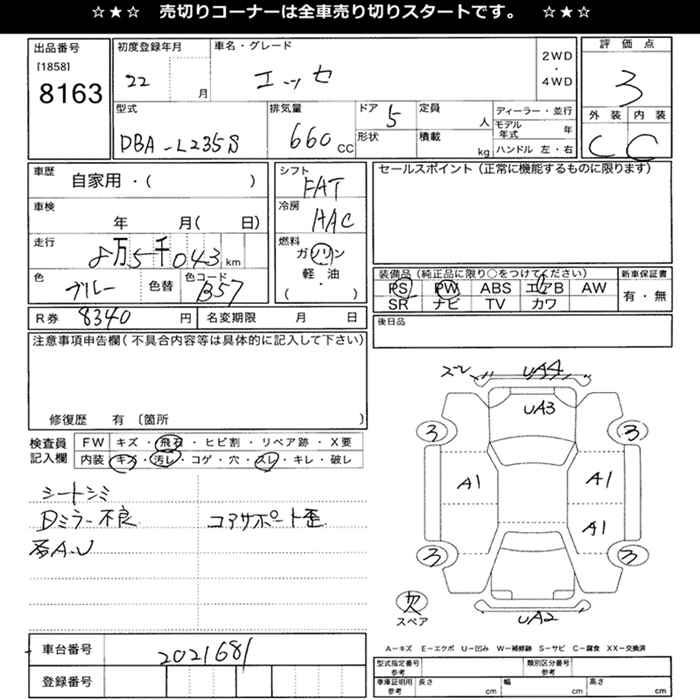 ☆★☆ 売切りコーナーは全車売り切りスタートです。 ☆★☆
出品番号
[1858]
8163
初度登録年月
22 月
車名・グレード
エッセ
2WD
・
4WD
評価点
3
型式
DBA-L235S
排気量
660 CC
ドア 5
形状
定員 人
積載 kg
ディーラー・並行
モデル年式 年
ハンドル 左・右
外装 内装
C C
車歴
自家用・( )
車検
年 月( 日)
走行
8万5千043 km
色
ブルー
色替
色コード
B57
シフト
FAT
冷房
HAC
燃料
ガソリン
軽・油
( )
セールスポイント (正常に機能するものに限ります)
装備品 (純正品に限り○をつけてください)
PS PW ABS エアB AW
SR ナビ TV カワ
新車保証書
有・無
R券 8340 円
名変期限 月 日
後日品
注意事項申告欄(不具合内容等は具体的に記入して下さい)
修復歴 有 〔箇所 〕
検査員
記入欄
FW キズ・飛石・ヒビ割・リペア跡・X要
内装 キズ・汚レ・コゲ・穴・スレ・キレ・破レ
シートシミ
Dミラー不良
コアサポート歪
A.U
UA4
UA3
3 3
A1 A1
A1
3 3
欠
スペア
UA2
A-キズ E-エクボ U-凹み W-補修跡 S-サビ C-腐食 XX-交換済
車台番号
2021681
登録番号
型式指定番号
参考
類別区分番号
参考
車庫証明用
参考
長さ cm
幅 cm
高さ cm